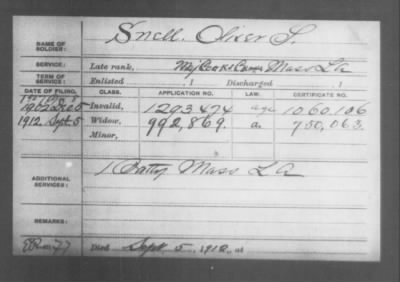 NAME OF SOLDIER: Snell, Oliver S.
SERVICE: Late rank, Mass L A
TERM OF SERVICE: Enlisted , 1 Discharged , 1
DATE OF FILING. CLASS. APPLICATION NO. LAW. CERTIFICATE NO.
1902 Dec 5 Invalid, 1293474 age 1060,106
1912 Sept. 5 Widow, 992,869. a. 750,063.
Minor,
ADDITIONAL SERVICES: 1 Batty Mass L A
REMARKS:
Died Sept 5, 1912, at